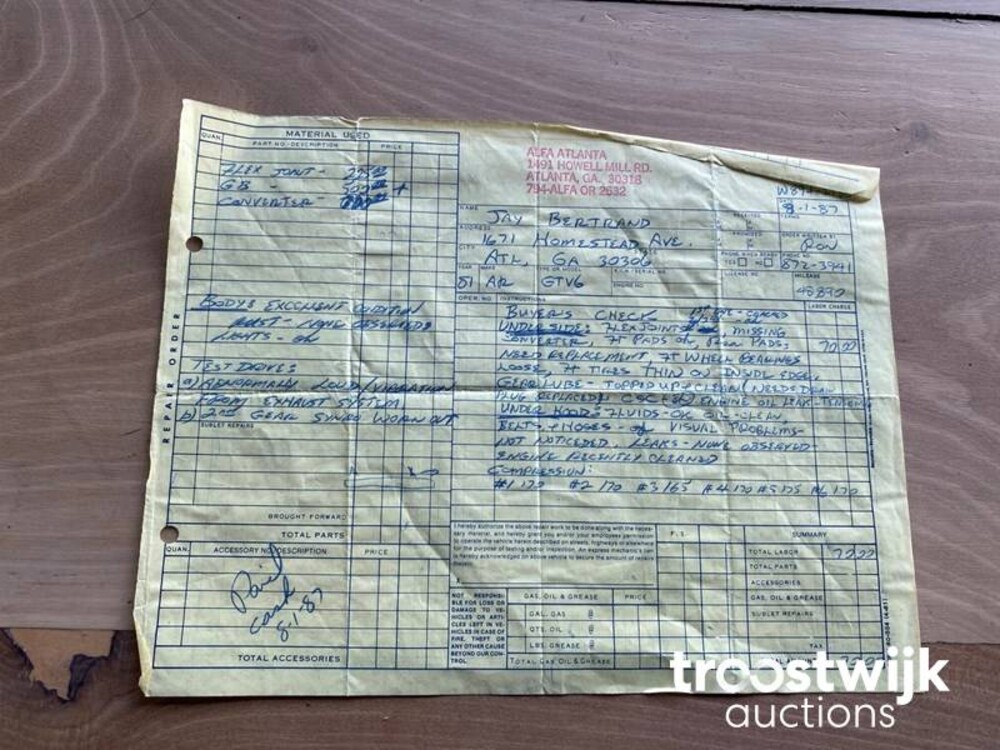 QUAN. MATERIAL USED
PART NO.-DESCRIPTION PRICE
FLEX JOINT -
GB -
CONVERTER -
ALFA ATLANTA
1491 HOWELL MILL RD.
ATLANTA, GA. 30318
794-ALFA OR 2532
8-1-87
NAME JAY BERTRAND
ADDRESS 1671 HOMESTEAD AVE.
CITY ATL, GA 30306
RECEIVED
PROMISED
TERMS
ORDER WRITTEN BY
RON
PHONE WHEN READY YES NO
PHONE NO.
872-3941
YEAR MAKE TYPE OR MODEL
81 AR GTV6
LICENSE NO. MILEAGE
REPAIR ORDER
BODY: EXCELLENT CONDITION
RUST - NONE OBSERVED
LIGHTS - OK
TEST DRIVE:
a) ABNORMALLY LOUD/VIBRATION
FROM EXHAUST SYSTEM
b) 2ND GEAR SYNCO WORN OUT
SUBLET REPAIRS
BROUGHT FORWARD
TOTAL PARTS
OPER. NO. INSTRUCTIONS LABOR CHARGE
BUYER'S CHECK
UNDERSIDE: FLEX JOINT MISSING
CONVERTER, FT PADS OK, REAR PADS, 70.00
NEED REPLACEMENT, FT WHEEL BEARINGS
LOOSE, FT TIRES THIN ON INSIDE EDGE,
GEAR LUBE - TOPPED UP - CLEAN (NEEDS DRAIN
PLUG REPLACED) ENGINE OIL LEAK -
UNDER HOOD: FLUIDS-OK OIL-CLEAN,
BELTS & HOSES - OK VISUAL PROBLEMS-
NOT NOTICEDED, LEAKS-NONE OBSERVED
ENGINE RECENTLY CLEANED
COMPRESSION:
#1 170 #2 170 #3 165 #4 170 #5 175 #6 170
QUAN. ACCESSORY NO./DESCRIPTION PRICE
Paid
cash
8-1-87
TOTAL ACCESSORIES
I hereby authorize the above repair work to be done along with the neces-
sary material, and hereby grant you and/or your employees permission
to operate the vehicle herein described on streets, highways or elsewhere
for the purpose of testing and/or inspection. An express mechanic's lien
is hereby acknowledged on above vehicle to secure the amount of repairs
thereto.
X
NOT RESPONSI-
BLE FOR LOSS OR
DAMAGE TO VE-
HICLES OR ARTI-
CLES LEFT IN VE-
HICLES IN CASE OF
FIRE, THEFT OR
ANY OTHER CAUSE
BEYOND OUR CON-
TROL.
GAS, OIL & GREASE PRICE
GAL. GAS @
QTS. OIL @
LBS. GREASE @
TOTAL GAS OIL & GREASE
SUMMARY
TOTAL LABOR 70.00
TOTAL PARTS
ACCESSORIES
GAS, OIL & GREASE
SUBLET REPAIRS
TAX
troostwijk
auctions